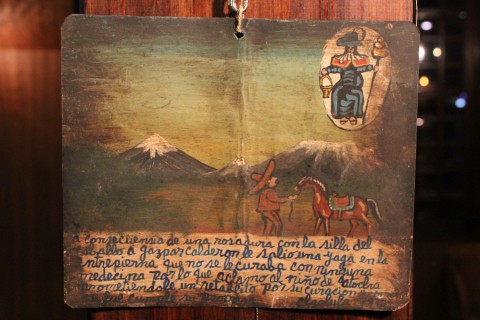 a consecuensia de una rosadura con la silla del
caballo a Gaspar Calderon le salio una yaga en la
entrepierna que no se le curaba con ninguna
medecina por lo que aclamo al niño de Atocha
prometiendole un retablito por su curacion